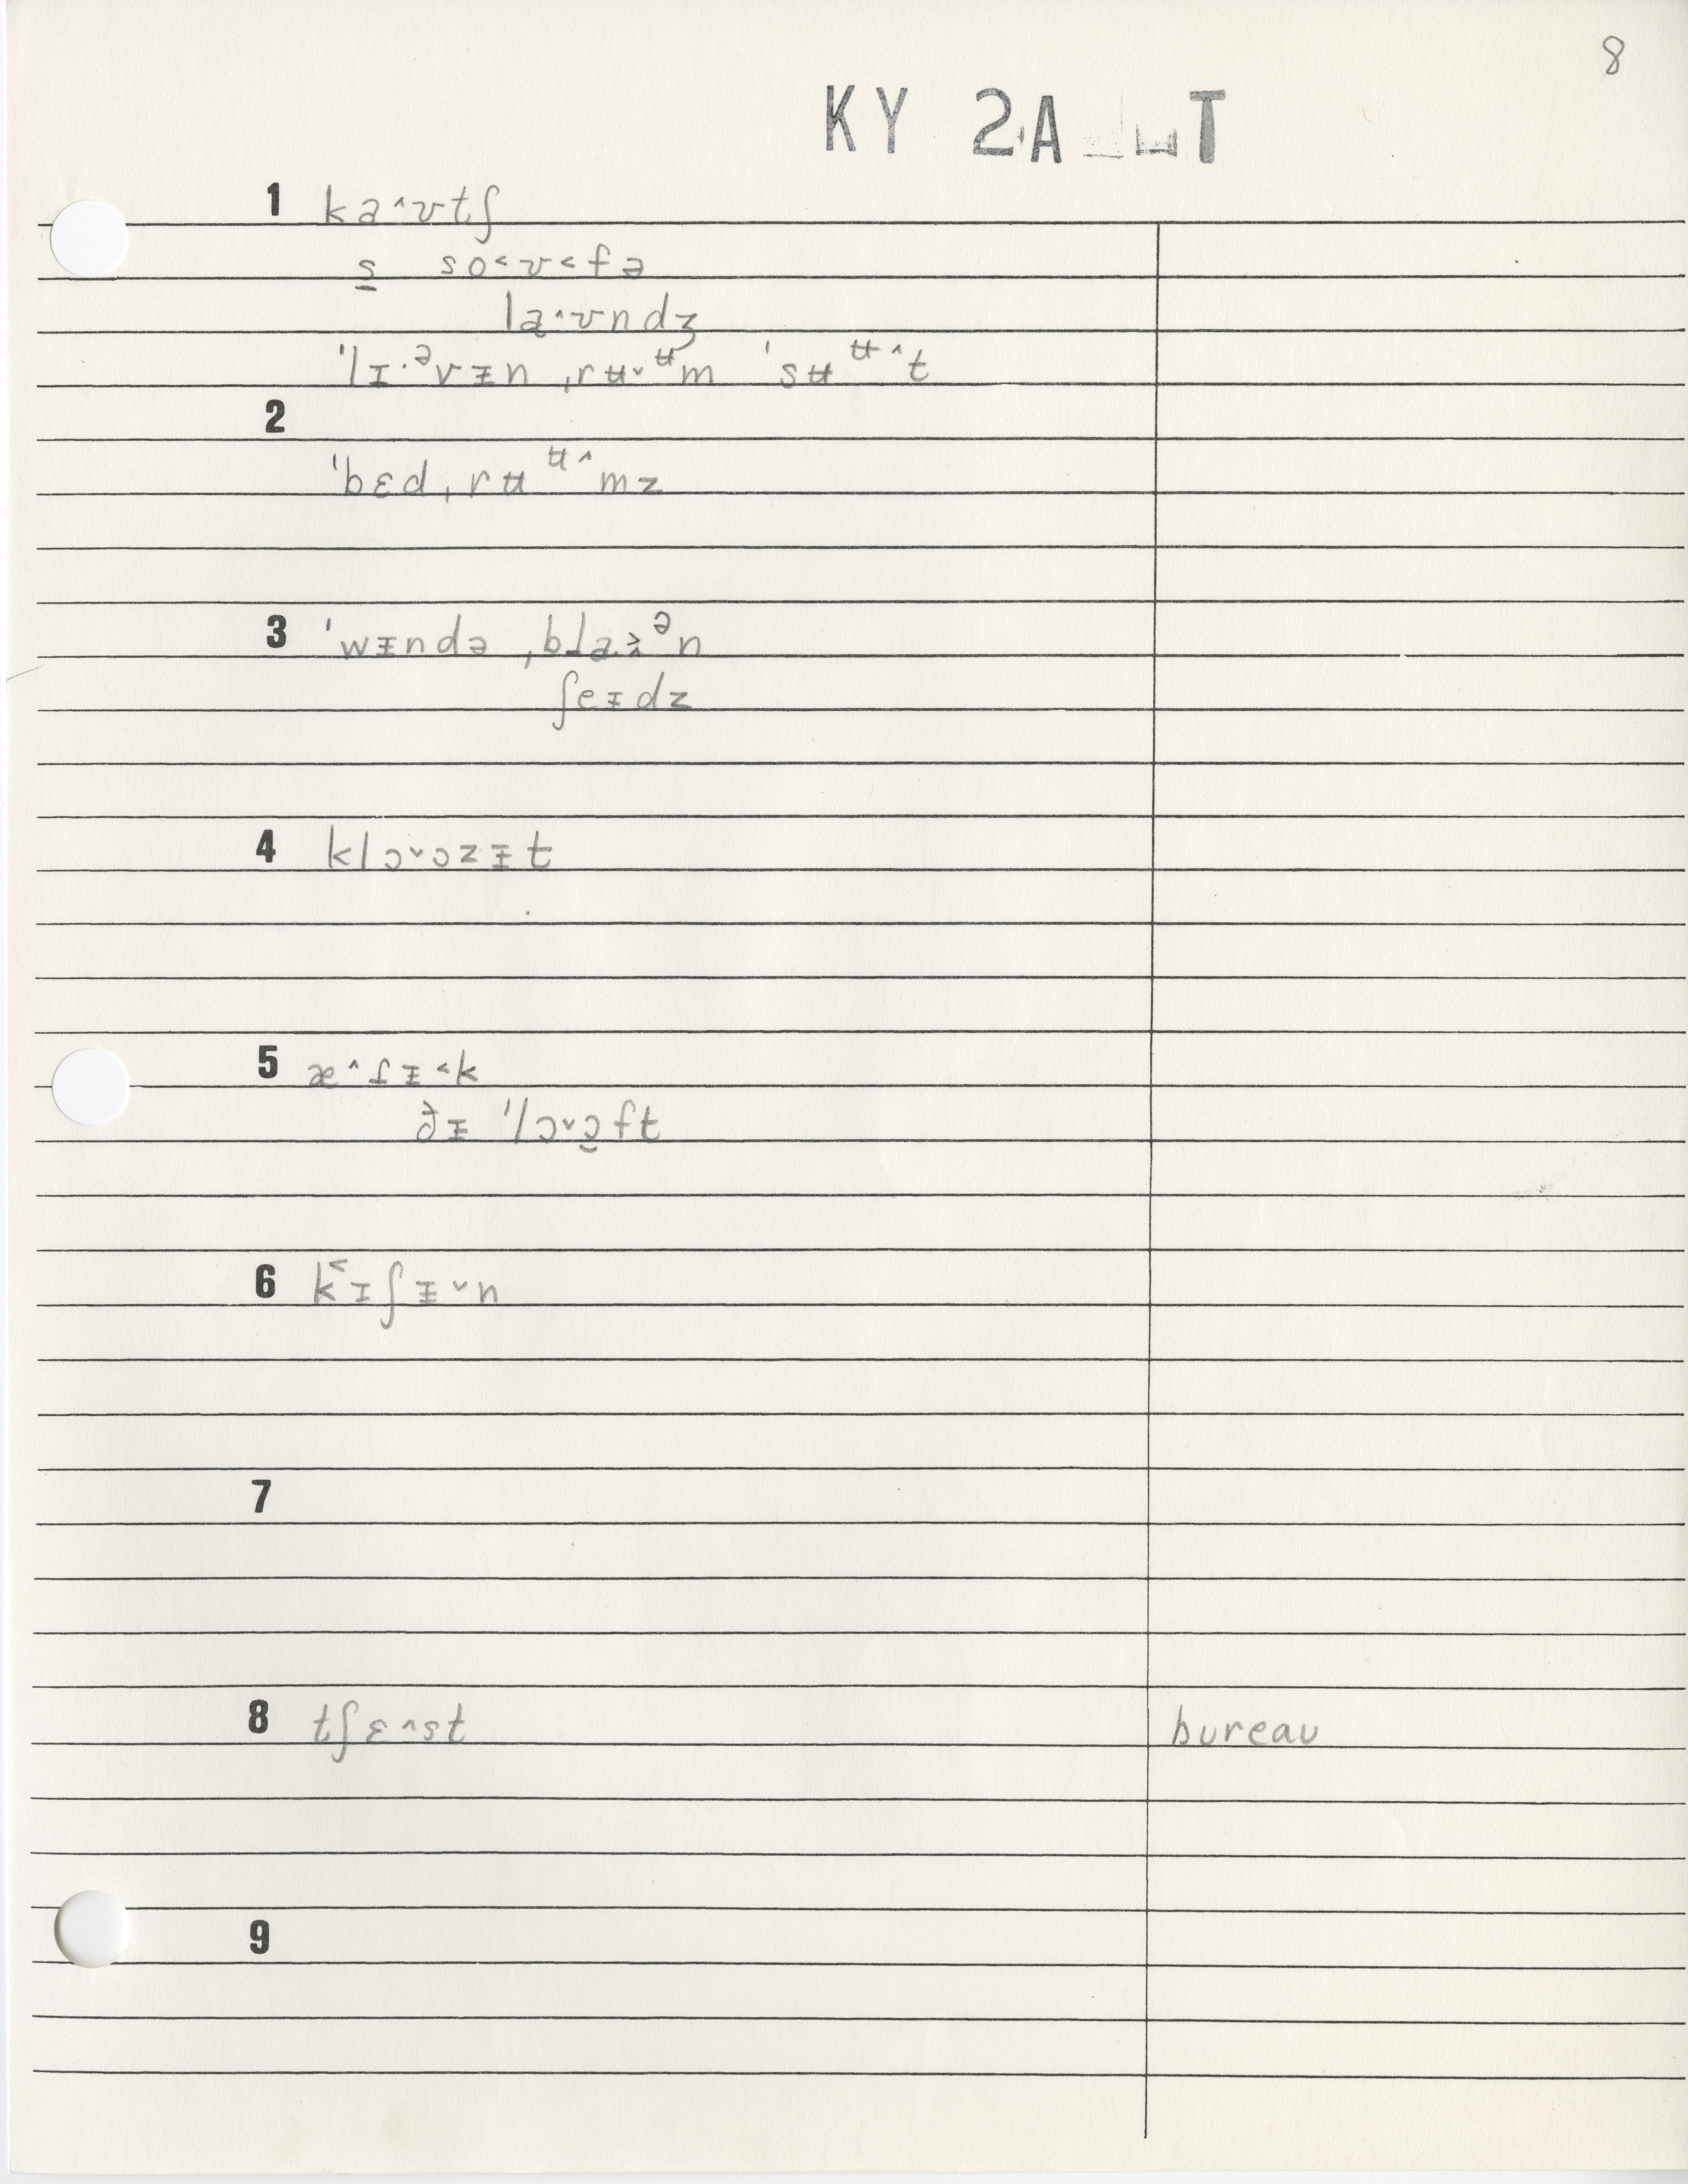 8
KY 2A T
1 ka^ʊtʃ
s̲ so˂ʊ˂fə
la̡^ʊndʒ
ˈlɪ·ᵊvɪ̵n ˌrʉ˅ᶶm ˈsʉᶶ^t
2
ˈbɛd ˌrʉᶶ^mz
3 ˈwɪ̵ndə ˌbla.˃̬ᵊn
ʃeɪ̵dz
4 klɔ˅ɔzɪ̵t
5 æ^ɾɪ̵˂k
ðɪ̵ ˈlɔ˅ɔ̯ft
6 k˂ɪʃɪ̵˅n
7
8 tʃɛ^st bureau
9